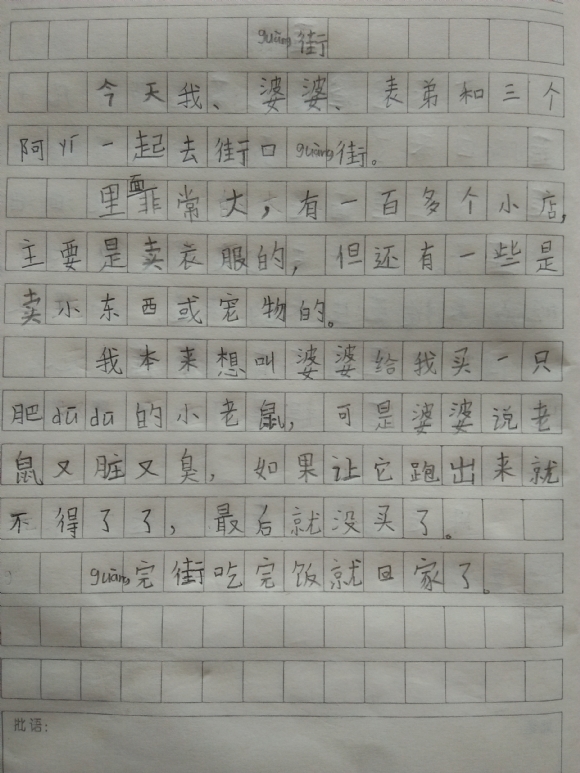 guàng街
今天我、婆婆、表弟和三个
阿yí一起去街口guàng街。
里面非常大，有一百多个小店，
主要是卖衣服的，但还有一些是
卖小东西或宠物的。
我本来想叫婆婆给我买一只
肥dūdū的小老鼠，可是婆婆说老
鼠又脏又臭，如果让它跑出来就
不得了了，最后就没买了。
guàng完街吃完饭就回家了。
批语：